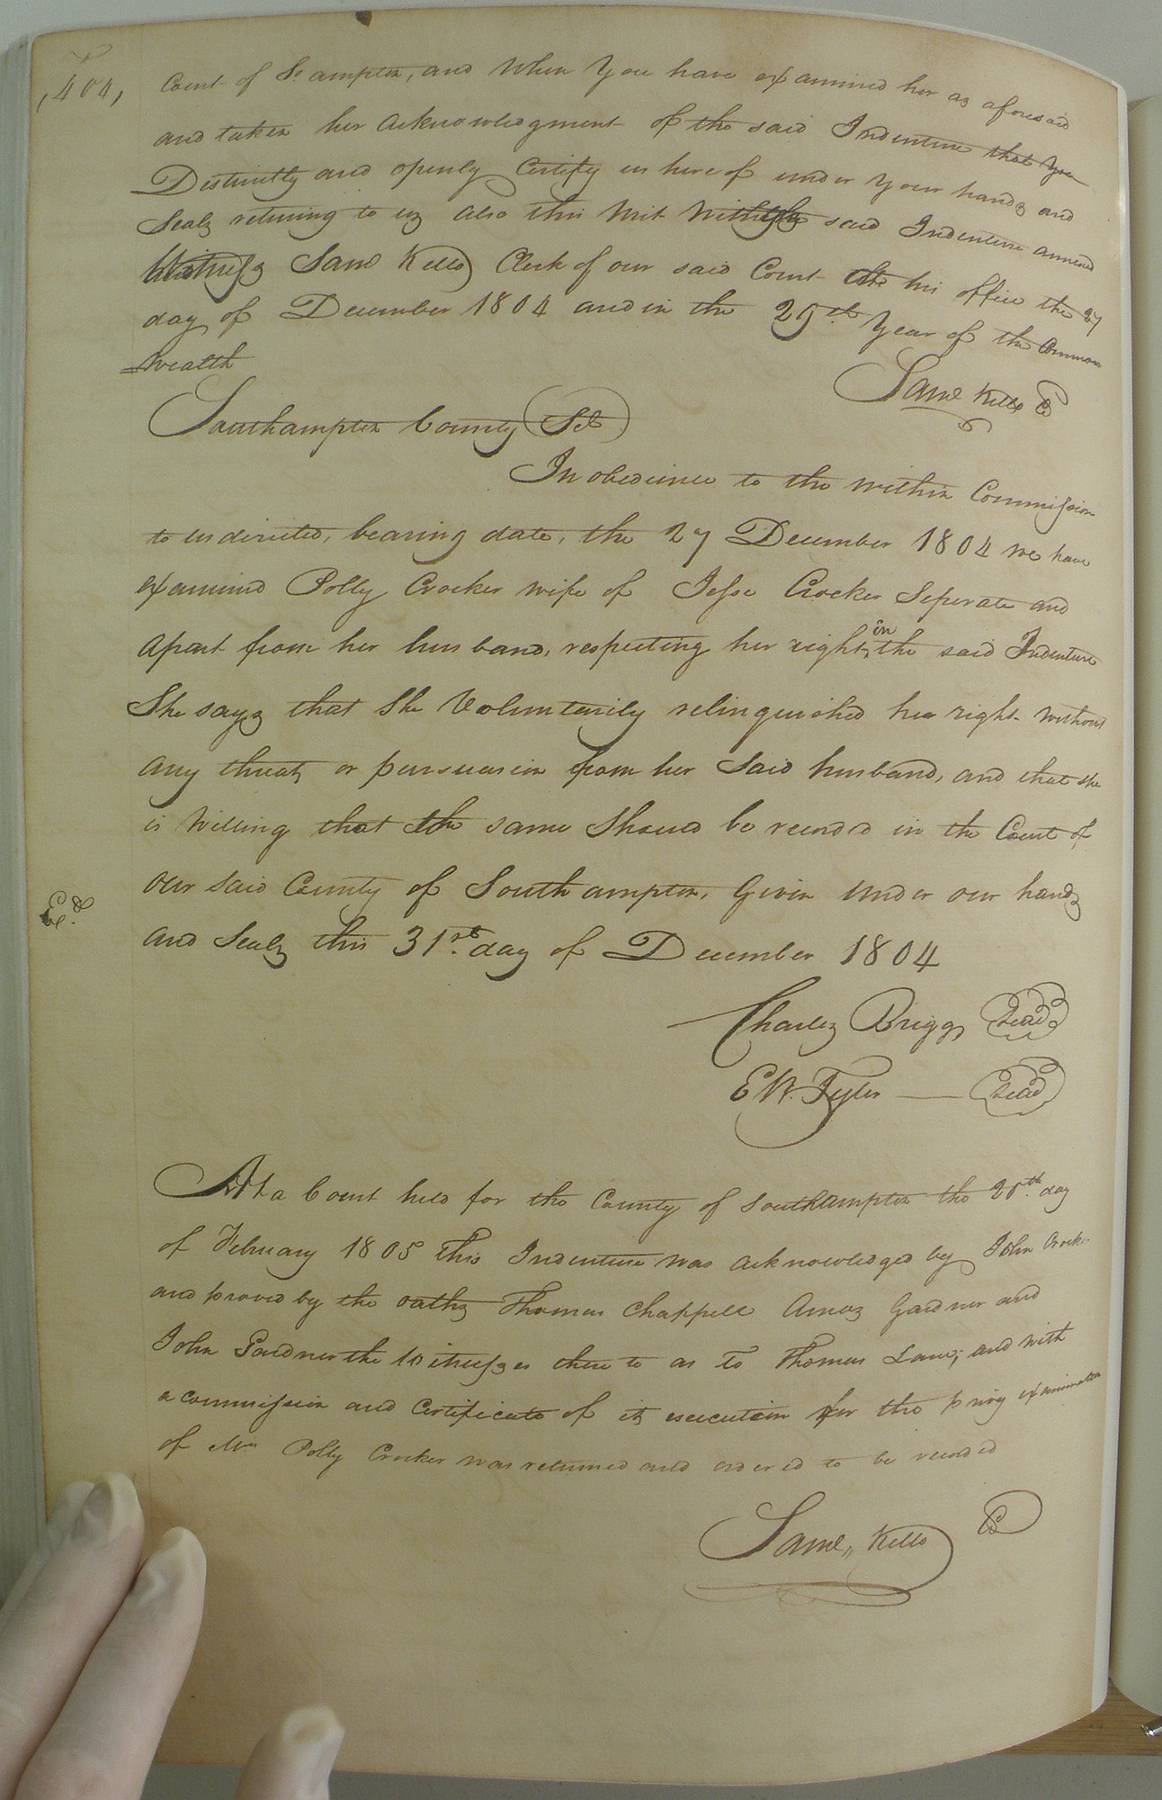 ,404,
Court of So ampton, and When You have examined her as aforesaid
and taken her acknowledgment of the said Indenture that you
Distinctly and openly Certify us hereof under Your hands and
Seals returning to us also this Writ With the said Indenture annexed
Witness Saml Kello Clerk of our said Court at his office the 27
day of December 1804 and in the 29th Year of the Common
=wealth
Saml Kello C
Southampton County Sct
In obedience to the within Commission
to us directed, bearing date, the 27 December 1804 we have
examined Polly Crocker wife of Jesse Crocker Seperate and
apart from her husband, respecting her right in the said Indenture
She says that She Voluntarily relinquished her right without
any threats or pursuasion from her said husband, and that she
is Willing that the same Should be recorded in the Court of
our said County of Southampton, Given under our hands
and Seals this 31st. day of December 1804
Charles Briggs Seal
E W. Tyler Seal
At a Court held for the County of Southampton the 20th. day
of February 1805 This Indenture was acknowledged by John Crocker
and proved by the oaths Thomas Chappell Amos Gardner and
John Gardner the Witnesses there to as To Thomas Lane; and with
a commission and Certificate of its execution for the privy examination
of Mrs Polly Crocker was returned and ordered to be recorded
Saml,, Kello C